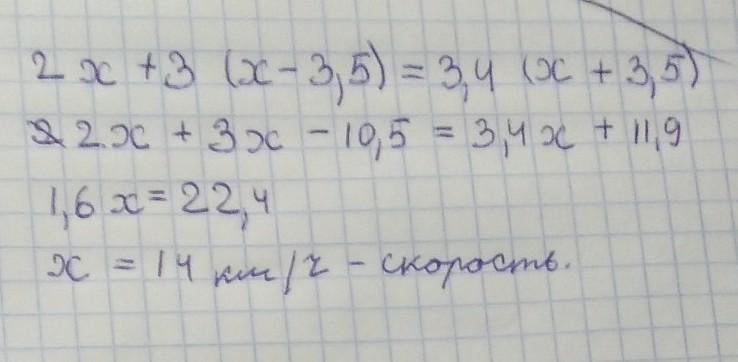 2x + 3 (x - 3,5) = 3,4 (x + 3,5)
2x + 3x - 10,5 = 3,4x + 11,9
1,6x = 22,4
x = 14 км/ч - скорость.